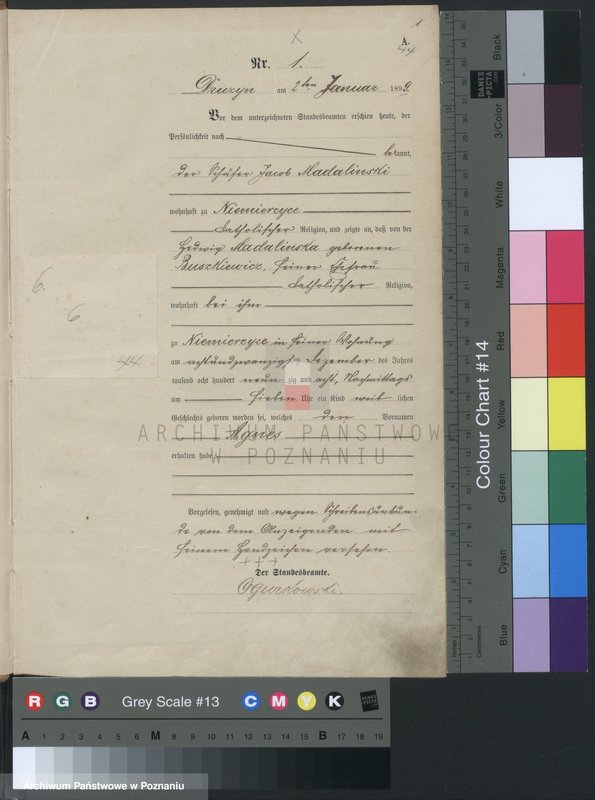 1
A.
Nr. 1.
Druzyn am 2ten Januar 1899.
Vor dem unterzeichneten Standesbeamten erschien heute, der
Persönlichkeit nach
bekannt,
der Schäfer Jacob Madalinski
wohnhaft zu Niemierzyce
katholischer Religion, und zeigte an, daß von der
Hedwig Madalinska geborenen
Buszkiewicz, seiner Ehefrau
katholischer Religion,
wohnhaft bei ihm
6.
6
zu Niemierzyce in seiner Wohnung
am achtundzwanzigsten Dezember des Jahres
tausend acht hundert neunzig und acht, Nachmittags
um sieben Uhr ein Kind weiblichen
Geschlechts geboren worden sei, welches den Vornamen
Agnes
erhalten habe
Vorgelesen, genehmigt und wegen Schreibensunkun-
de von dem Anzeigenden mit
seinem Handzeichen versehen.
+++
Der Standesbeamte.
Ogurkowski.
ARCHIWUM PAŃSTWOWE
W POZNANIU
Colour Chart #14
Black
3/Color
White
Magenta
Red
Yellow
Green
Cyan
Blue
DANES
PICTA
Inches
Centimetres
R G B Grey Scale #13 C M Y K
A 1 2 3 4 5 6 M 8 9 10 11 12 13 14 15 B 17 18 19
Archiwum Państwowe w Poznaniu